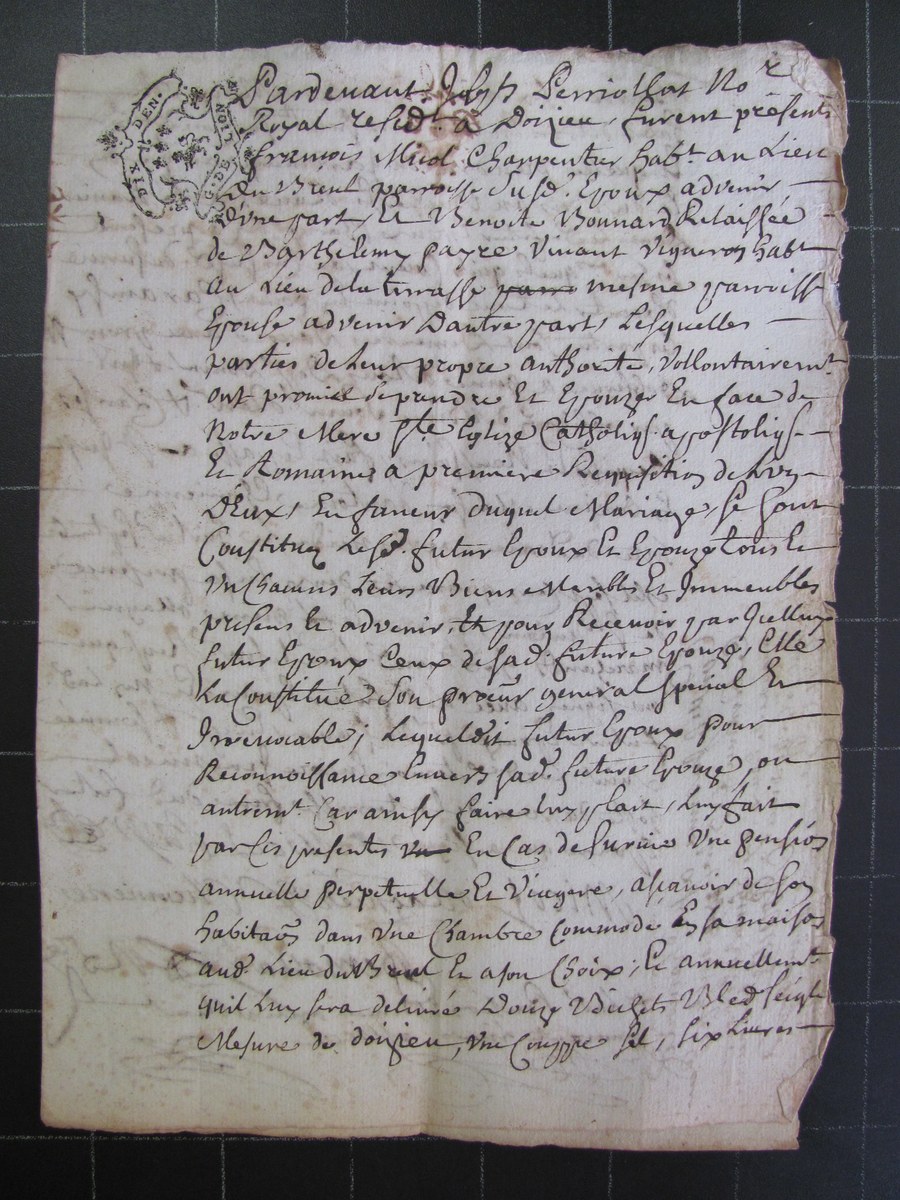 DIX DEN.
G. DE LION
Pardevant Perriolhat No.re
Royal resid.t a Doizieu, furent présents
francois Micol Charpentier hab.t au Lieu
Du Breul parroisse susd.e Epoux advenir
D'vne part, Et Benoite Bonnard Relaissée
de Barthelemy payre Vivant Vigneron hab.t
au Lieu de la terrasse mesme parroisse
Epouse advenir D'autre part, Lesquelles
parties de Leur propre authorité, Vollontairem.t
ont promis se prendre Et Epouzer En face de
Notre Mere S.te Eglize Catholiq. apostoliq.
Et Romaine a premiere Requisition de L'un
D'Eux, En faveur duquel Mariage, se sont
Constitués Lesd. futur Epoux Et Epouze tous Et
Vn Chacuns Leurs Biens Meubles Et Immeubles
présens Et advenir, Et pour Recevoir par Icelluy
futur Epoux Ceux de sad. future Epouze, Elle
La Constitué Son procur general special Et
Irrevocable; Lequeldit futur Epoux pour
Reconnoissance Envers sad. future Epouze, ou
autrem.t Car ainsy faire Luy plait, Luy fait
par Ces presentes En Cas de survie Vne pension
annuelle perpetuelle Et Viagere, ascavoir de son
habitaōn dans Vne Chambre Commode En sa maison
aud. Lieu du Breul Et a son Choix; Et annuellem.t
quil Luy sera delivré Douze Bichets Bled seigle
Mesure de doizieu, vne Couppe sel, six Livres